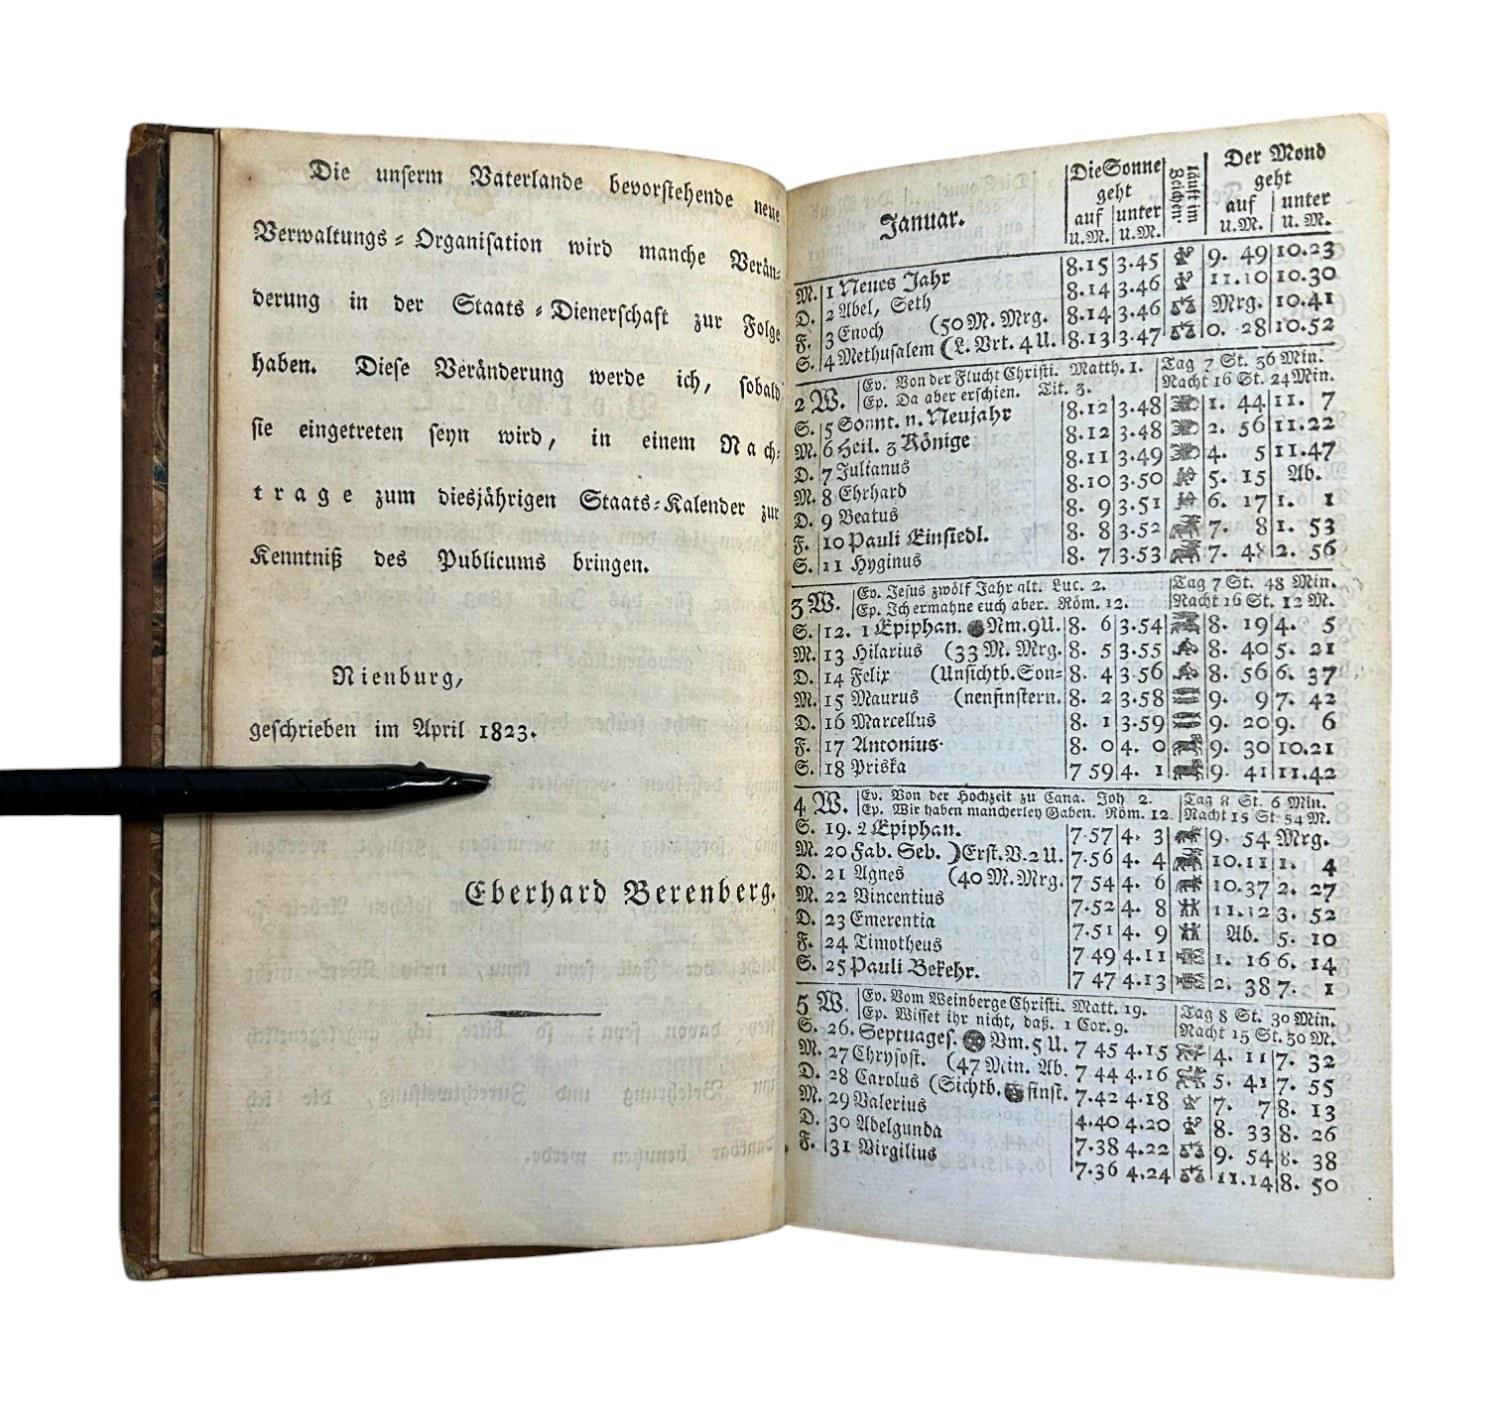 Die unserm Vaterlande bevorstehende neue
Verwaltungs-Organisation wird manche Verän-
derung in der Staats-Dienerschaft zur Folge
haben. Diese Veränderung werde ich, sobald
sie eingetreten seyn wird, in einem Nach-
trage zum diesjährigen Staats-Kalender zur
Kenntniß des Publicums bringen.
Nienburg,
geschrieben im April 1823.
Eberhard Berenberg.
Januar. Die Sonne geht auf u.M. unter u.M. läuft im Zeichen: Der Mond geht auf u.M. unter u.M.
M. 1 Neues Jahr 8.15 3.45 9. 49 10.23
D. 2 Abel, Seth 8.14 3.46 11.10 10.30
F. 3 Enoch (50 M. Mrg. 8.14 3.46 Mrg. 10.41
S. 4 Methusalem (L. Vrt. 4 U. 8.13 3.47 0. 28 10.52
2 W. Ev. Von der Flucht Christi. Matth. 1. Tag 7 St. 36 Min.
Ep. Da aber erschien. Tit. 3. Nacht 16 St. 24 Min.
S. 5 Sonnt. n. Neujahr 8.12 3.48 1. 44 11. 7
M. 6 Heil. 3 Könige 8.12 3.48 2. 56 11.22
D. 7 Julianus 8.11 3.49 4. 5 11.47
M. 8 Ehrhard 8.10 3.50 5. 15 Ab.
D. 9 Beatus 8. 9 3.51 6. 17 1. 1
F. 10 Pauli Einsiedl. 8. 8 3.52 7. 8 1. 53
S. 11 Hyginus 8. 7 3.53 7. 48 2. 56
3 W. Ev. Jesus zwölf Jahr alt. Luc. 2. Tag 7 St. 48 Min.
Ep. Ich ermahne euch aber. Röm. 12. Nacht 16 St. 12 M.
S. 12. 1 Epiphan. Nm. 9 U. 8. 6 3.54 8. 19 4. 5
M. 13 Hilarius (33 M. Mrg. 8. 5 3.55 8. 40 5. 21
D. 14 Felix (Unsichtb. Son- 8. 4 3.56 8. 56 6. 37
M. 15 Maurus (nenfinstern. 8. 2 3.58 9. 9 7. 42
D. 16 Marcellus 8. 1 3.59 9. 20 9. 6
F. 17 Antonius 8. 0 4. 0 9. 30 10.21
S. 18 Priska 7 59 4. 1 9. 41 11.42
4 W. Ev. Von der Hochzeit zu Cana. Joh 2. Tag 8 St. 6 Min.
Ep. Wir haben mancherley Gaben. Röm. 12. Nacht 15 St 54 M.
S. 19. 2 Epiphan. 7.57 4. 3 9. 54 Mrg.
M. 20 Fab. Seb. )Erst. V. 2 U. 7.56 4. 4 10.11 1. 4
D. 21 Agnes (40 M. Mrg. 7 54 4. 6 10.37 2. 27
M. 22 Vincentius 7.52 4. 8 11.12 3. 52
D. 23 Emerentia 7.51 4. 9 Ab. 5. 10
F. 24 Timotheus 7 49 4.11 1. 16 6. 14
S. 25 Pauli Bekehr. 7 47 4.13 2. 38 7. 1
5 W. Ev. Vom Weinberge Christi. Matt. 19. Tag 8 St. 30 Min.
Ep. Wisset ihr nicht, daß. 1 Cor. 9. Nacht 15 St. 30 M.
S. 26. Septuages. Vm. 5 U. 7 45 4.15 4. 11 7. 32
M. 27 Chrysost. (47 Min. Ab. 7 44 4.16 5. 41 7. 55
D. 28 Carolus (Sichtb. finst. 7.42 4.18 7. 7 8. 13
M. 29 Valerius 4.40 4.20 8. 33 8. 26
D. 30 Adelgunda 7.38 4.22 9. 54 8. 38
F. 31 Virgilius 7.36 4.24 11.14 8. 50